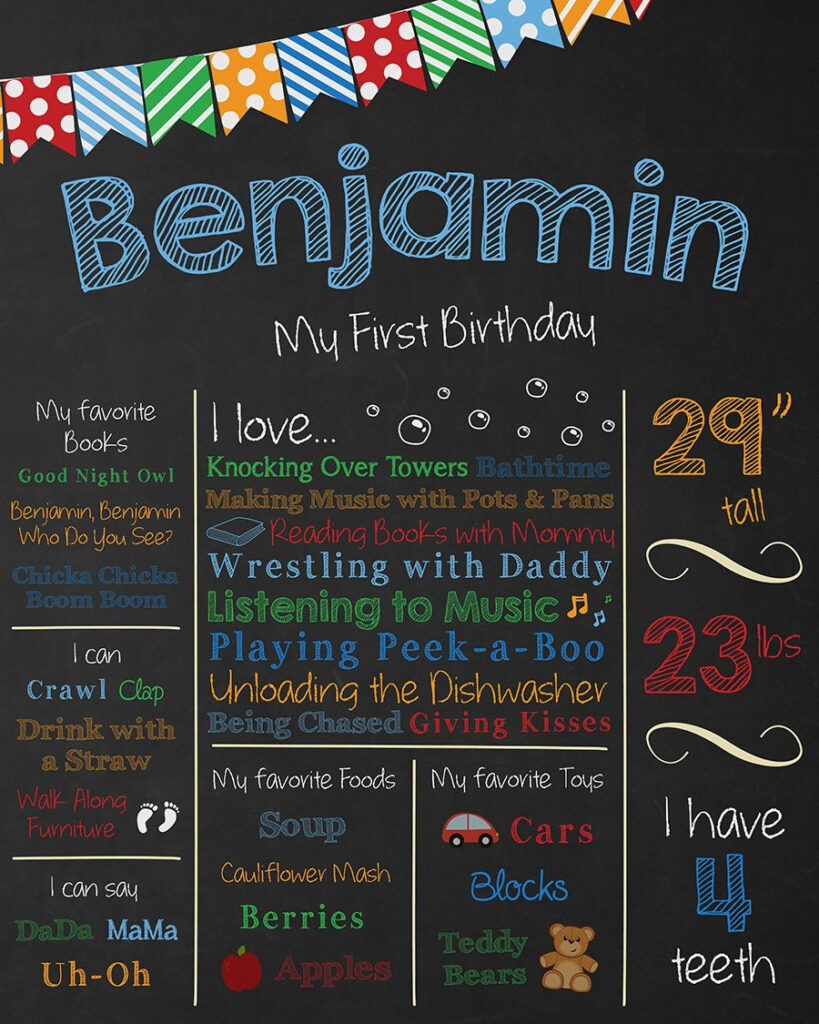 Benjamin
My First Birthday
My favorite
Books
Good Night Owl
Benjamin, Benjamin
Who Do You See?
Chicka Chicka
Boom Boom
I can
Crawl Clap
Drink with
a Straw
Walk Along
Furniture
I can say
DaDa MaMa
Uh-Oh
I love...
Knocking Over Towers Bathtime
Making Music with Pots & Pans
Reading Books with Mommy
Wrestling with Daddy
Listening to Music
Playing Peek-a-Boo
Unloading the Dishwasher
Being Chased Giving Kisses
My favorite Foods
Soup
Cauliflower Mash
Berries
Apples
My favorite Toys
Cars
Blocks
Teddy
Bears
29"
tall
23 lbs
I have
4
teeth